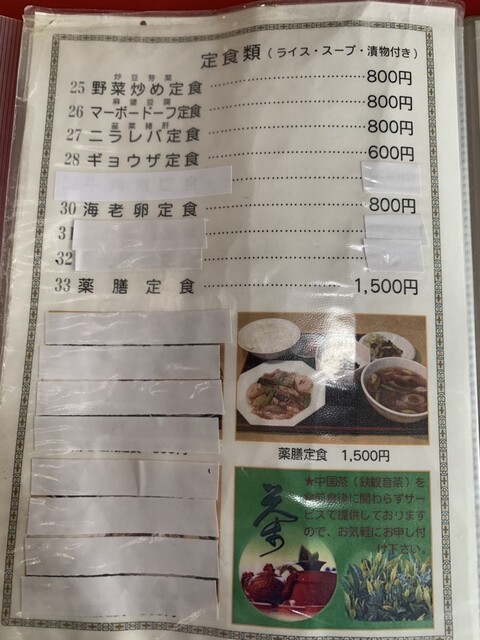 定食類（ライス・スープ・漬物付き）
25 野菜炒め定食 800円
麻婆豆腐
26 マーボードーフ定食 800円
27 ニラレバ定食 800円
28 ギョウザ定食 600円
30 海老卵定食 800円
31
32
33 薬膳定食 1,500円
薬膳定食 1,500円
★中国茶（鉄観音茶）を
食前食後に関わらずサー
ビスで提供しております
ので、お気軽にお申し付
け下さい。
茶